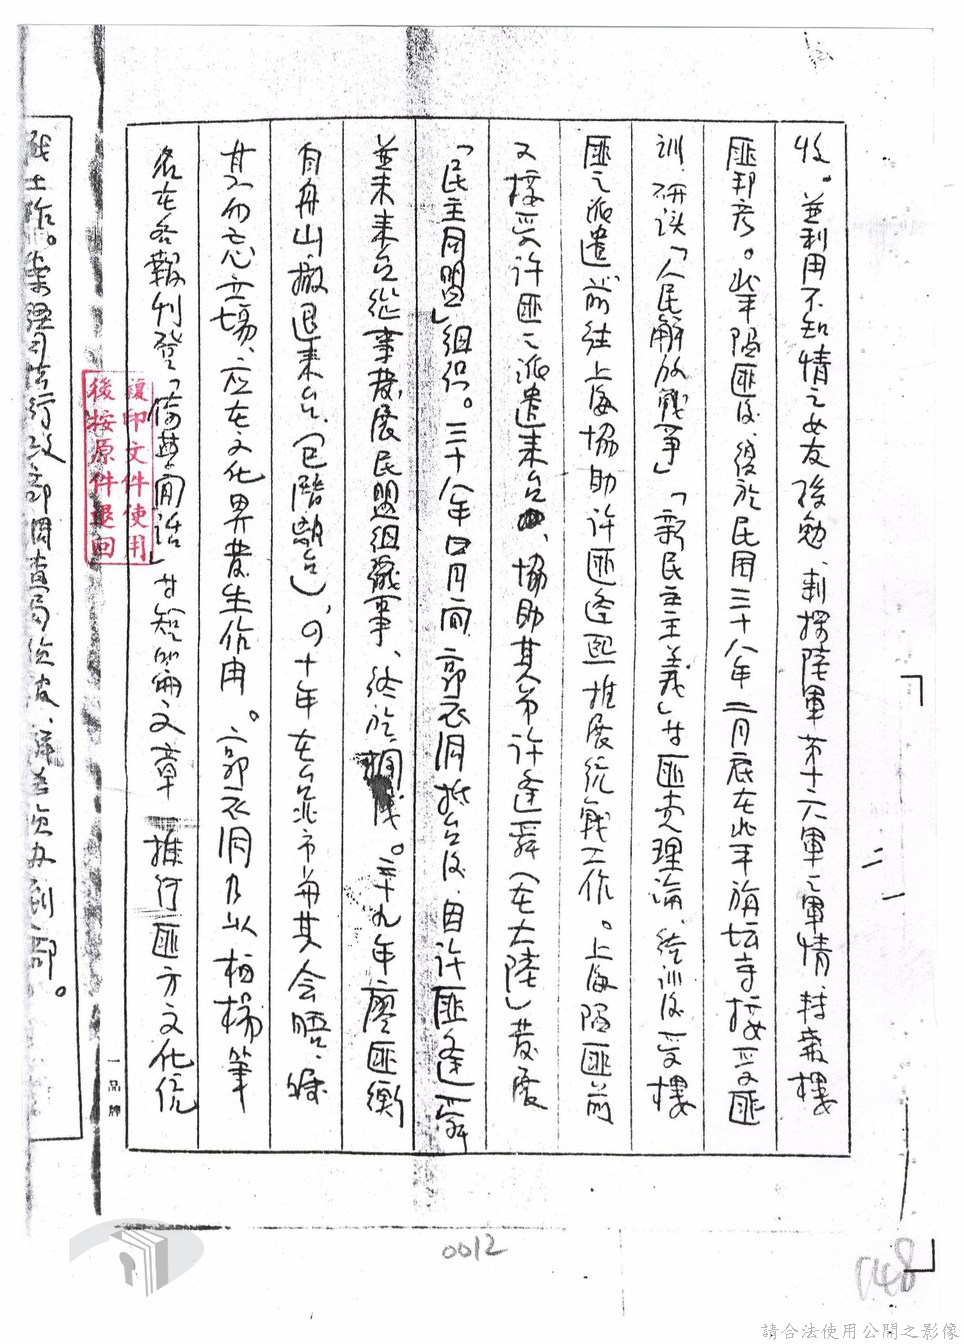 收。並利用不知情之女友孫勉、刺探陸軍第十六軍之軍情、轉報樓
匪邦彥。北平陷匪後、復於民國三十八年二月底在北平旃坛寺接受匪
訓、研讀「人民解放戰爭」「新民主主義」等匪党理論、結訓後受樓
匪之派遣前往上海協助許匪逢熙推展統戰工作。上海陷匪前
又接受許匪之派遣來台、協助其弟許逢舜(在大陸)發展
「民主同盟」組织。三十八年四月间郭衣洞抵台後、因許匪逢舜
並未來台從事發展民盟組織事、終於擱淺。三十九年廖匪衡
自舟山撤退來台、(已潛離台)。四十年在台北市與其会晤、嘱
其勿忘立場、应在文化界發生作用。郭衣洞乃以柏楊筆
名在各報刊登「倚夢闲話」等短篇文章推行匪方文化統
戰工作。案經司法行政部調查局偵查、移送到部。
複印文件使用
後按原件退回
一品牌
二
0012
148
請合法使用公開之影像